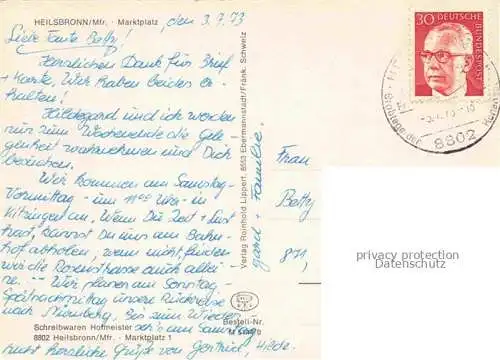 HEILSBRONN/Mfr. · Marktplatz
, den 3.7.73
Liebe Tante Betty!
Herzlichen Dank für Brief
+ Karte. Wir haben beides er-
halten!
Hildegard und ich werden
nun zum Wochenende die Gele-
genheit wahrnehmen und Dich
besuchen.
Wir kommen am Samstag-
Vormittag - um 11 Uhr - in
Kitzingen an. Wenn Du Zeit + Lust
hast, kannst Du uns am Bahn-
hof abholen, wenn nicht, finden
wir die Rosenstrasse auch allei-
ne. -- Wir planen am Sonntag-
Spätnachmittag unsere Rückreise
nach Nürnberg. Bis zum Wieder-
seh'n am Samstag
herzliche Grüße von Gertrud, Hilde.
Schreibwaren Hofmeister
8802 Heilsbronn/Mfr. · Marktplatz 1
Bestell-Nr.
Verlag Reinhold Lippert, 8553 Ebermannstadt/Fränk. Schweiz
+ Familie.
Frau
Betty
871
30 DEUTSCHE
BUNDESPOST
8802
privacy protection
Datenschutz